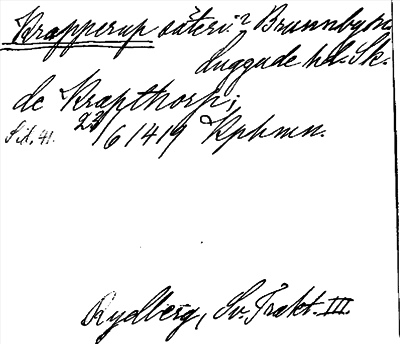 Krapperup säteri? Brunnby sn.
Luggude hd. Sk.
de Krapthorp;
Sid. 41. 23/6 1419 Kphmn.
Rydberg, Sv. Trakt. III.